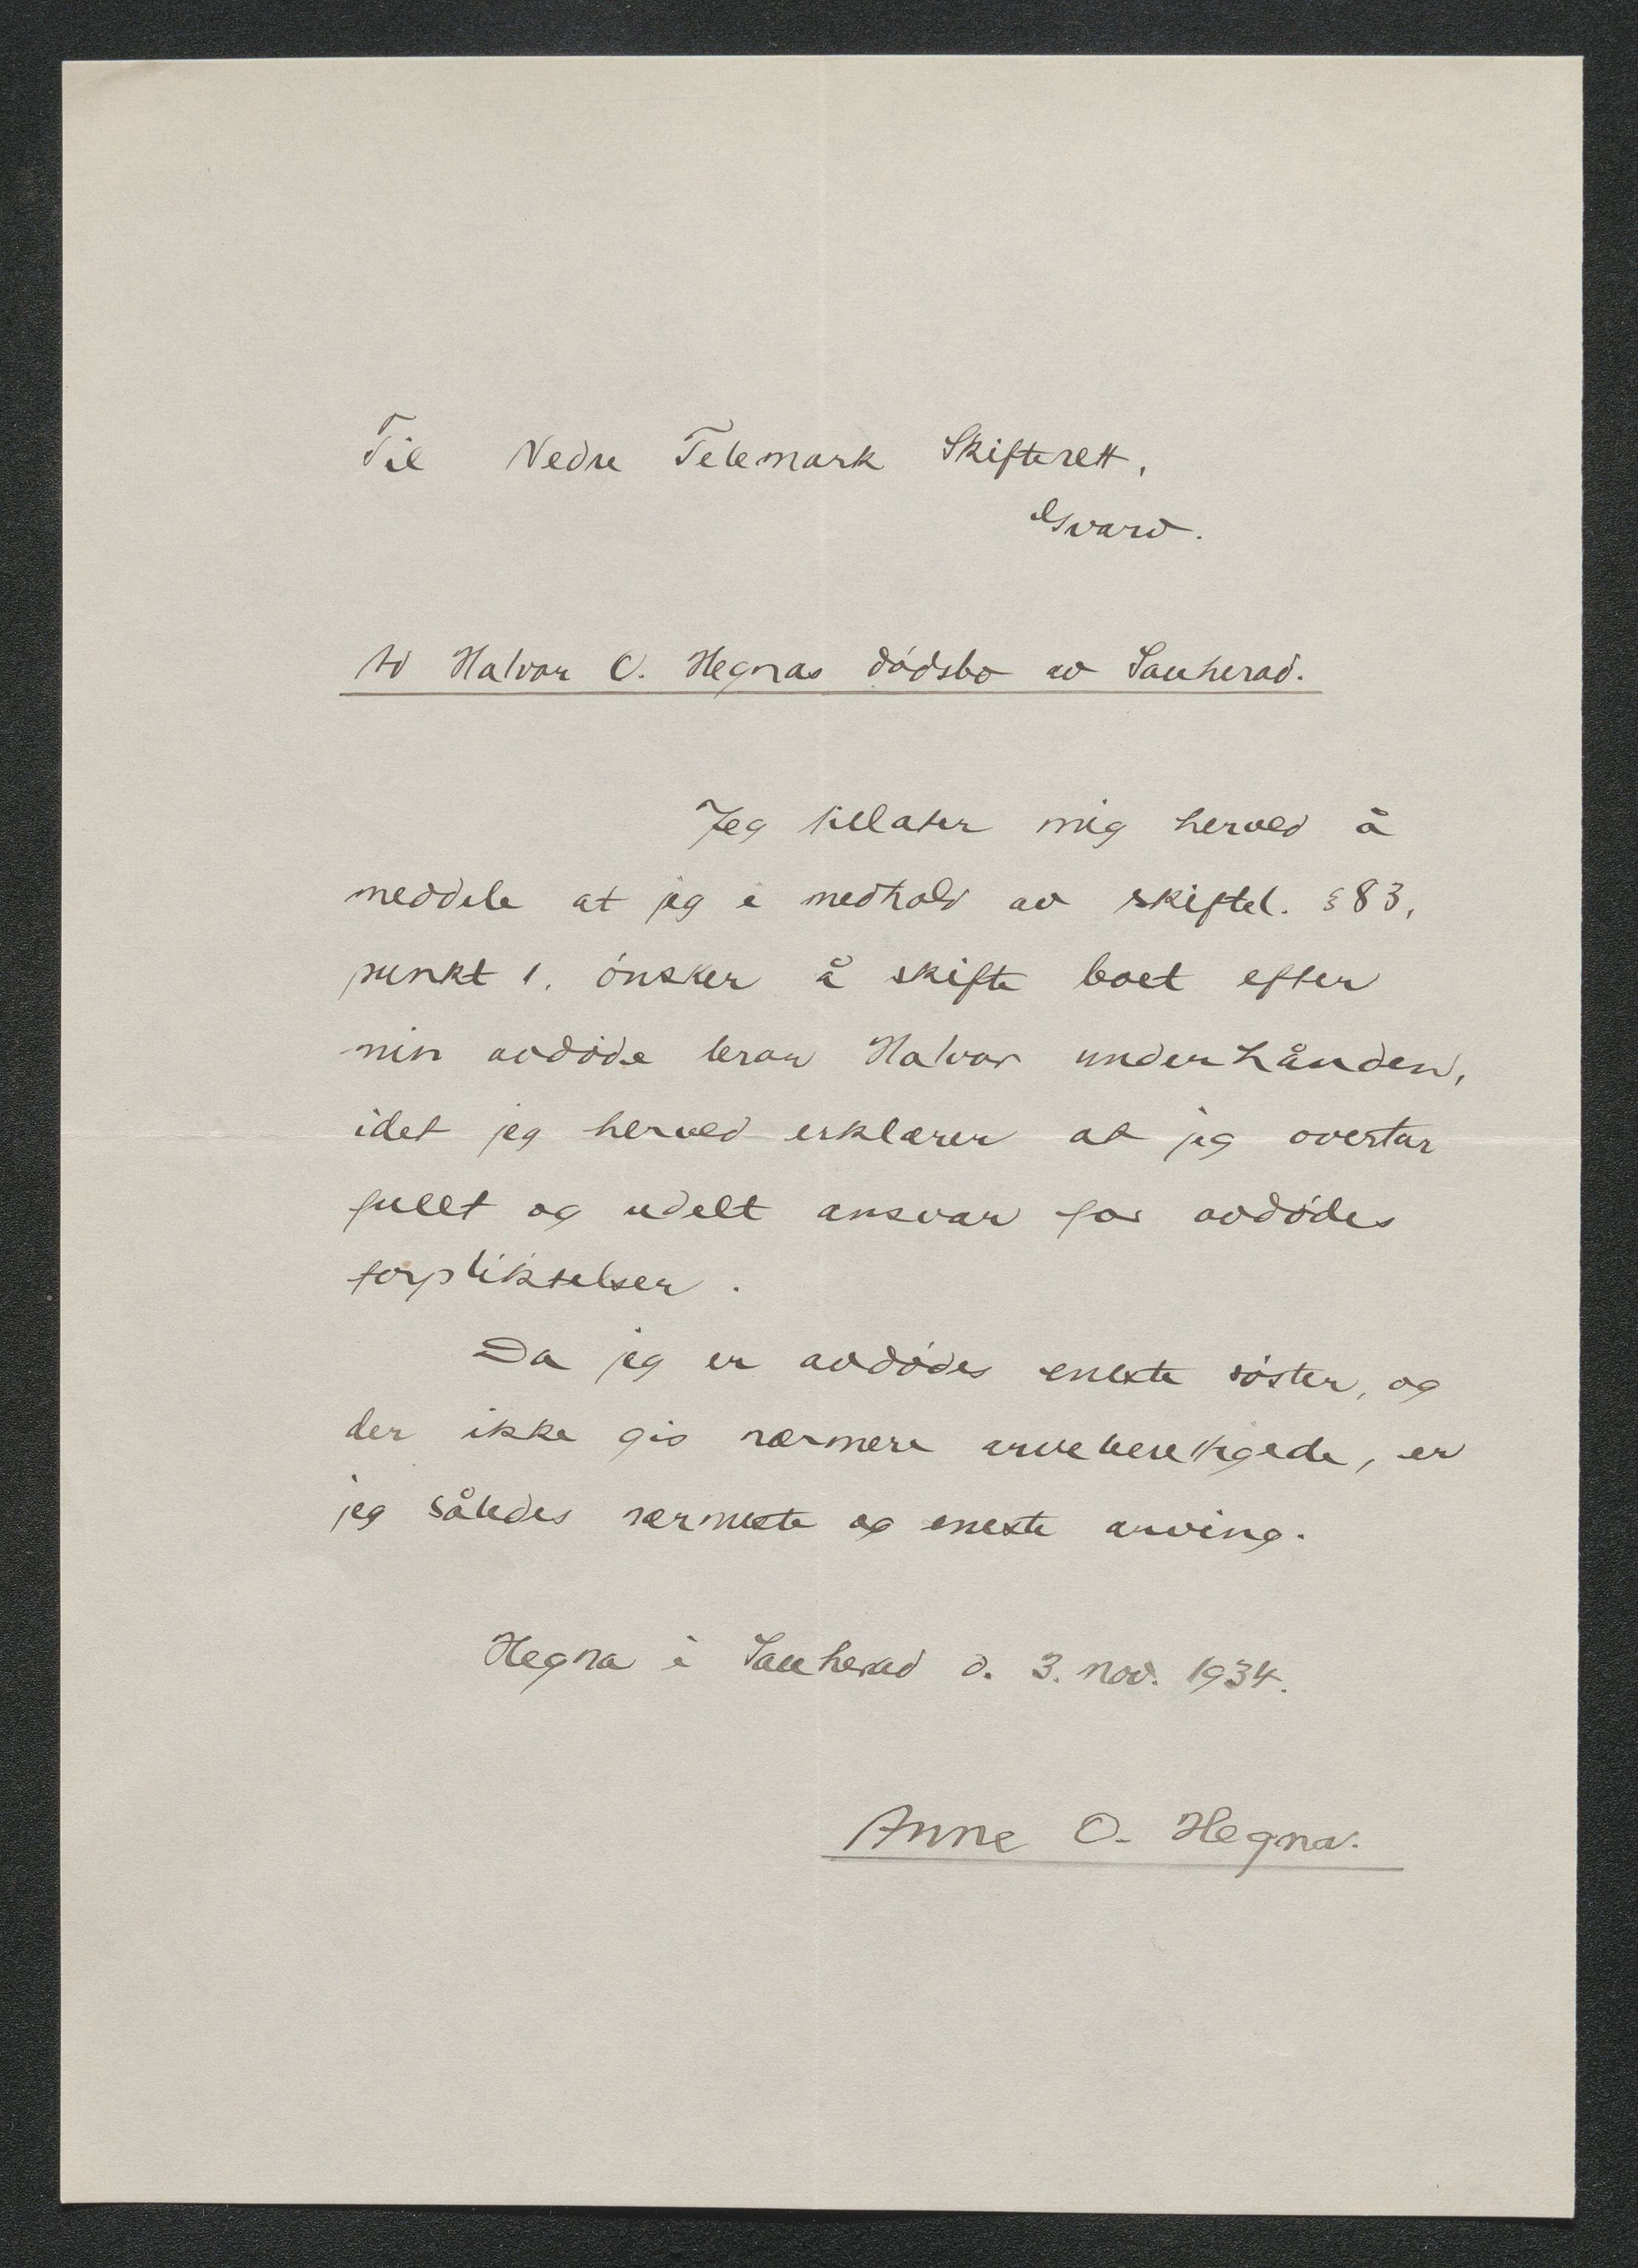 Til Nedre Telemark Skifterett,
Gvarv.
Ad Halvor O. Hegnas dødsbo av Sauherad.
Jeg tillater mig herved å
meddele at jeg i medhold av skiftel. § 83,
punkt 1. ønsker å skifte boet efter
min avdøde bror Halvor underhånden,
idet jeg herved erklærer at jeg overtar
fullt og udelt ansvar for avdødes
forpliktelser.
Da jeg er avdødes eneste søster, og
der ikke gis nærmere arveberettigede, er
jeg således nærmeste og eneste arving.
Hegna i Sauherad d. 3. nov. 1934.
Anne O. Hegna.